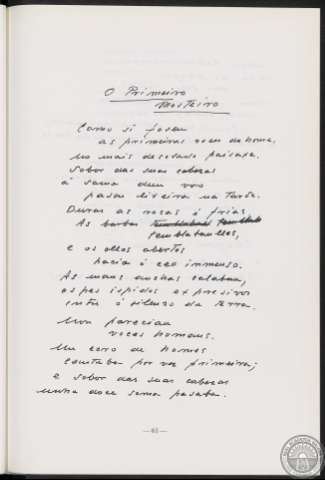 O Primeiro
Mosteiro
Como si fosen
as primeiras voces do home,
no mais desolado paisaxe.
Sobor das suas cabezas
a soma dun voo
pasou lixeira na tarde.
Duras as rosas
As barbas
temblábanlles,
e os ollos abertos
hacia o ceo inmenso.
As mans anchas calaban,
os pes espidos expresivos
entre o silenzo da terra.
Non parecían
voces homans.
Un coro de homes
cantaba por vez primeira;
e sobor das suas cabezas
unha doce soma pasaba.
—65—